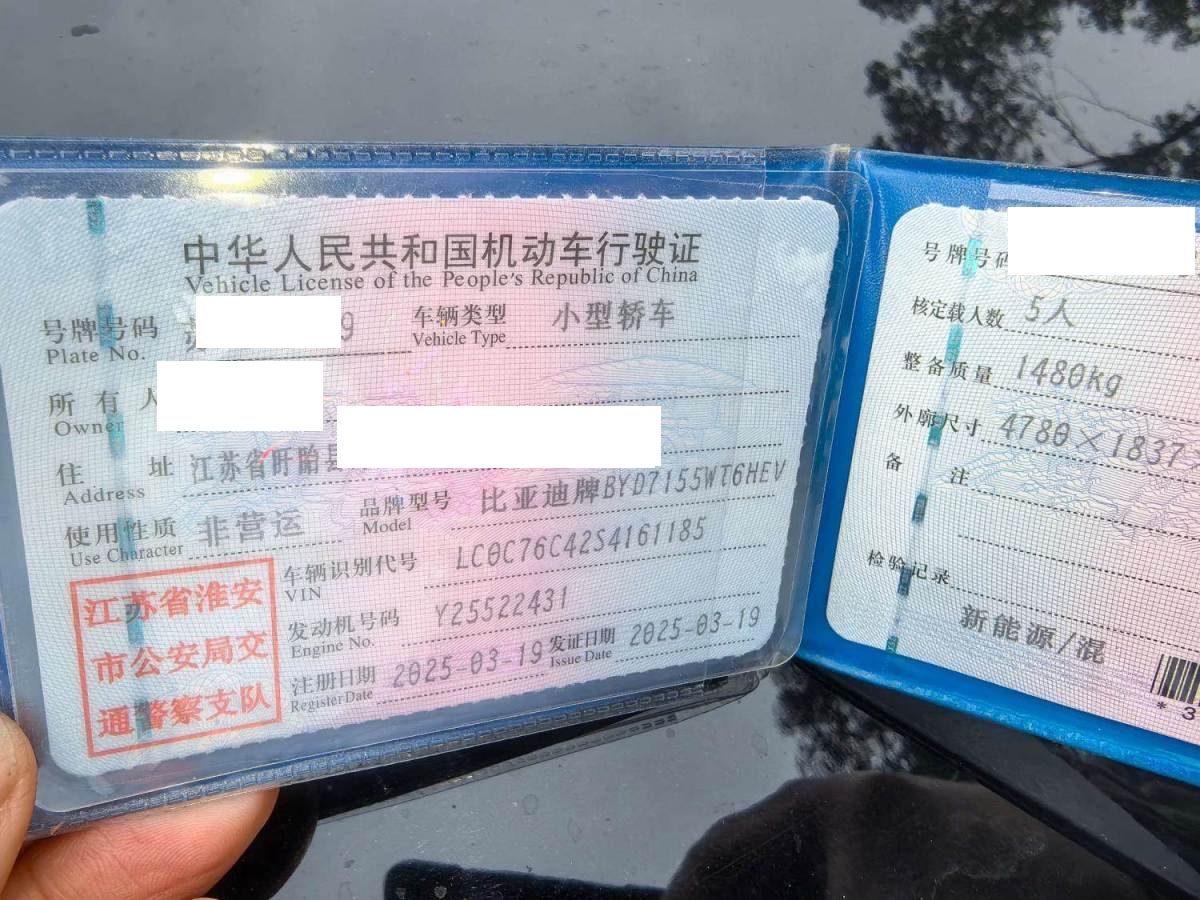 中华人民共和国机动车行驶证
Vehicle License of the People's Republic of China
号牌号码 9
Plate No.
车辆类型 小型轿车
Vehicle Type
所有人
Owner
住址 江苏省盱眙县
Address
使用性质 非营运
Use Character
品牌型号 比亚迪牌BYD7155WT6HEV
Model
江苏省淮安
市公安局交
通警察支队
车辆识别代号 LC0C76C42S4161185
VIN
发动机号码 Y25522431
Engine No.
注册日期 2025-03-19
Register Date
发证日期 2025-03-19
Issue Date
号牌号码
核定载人数 5人
整备质量 1480kg
外廓尺寸 4780×1837
备注
检验记录
新能源/混
*3